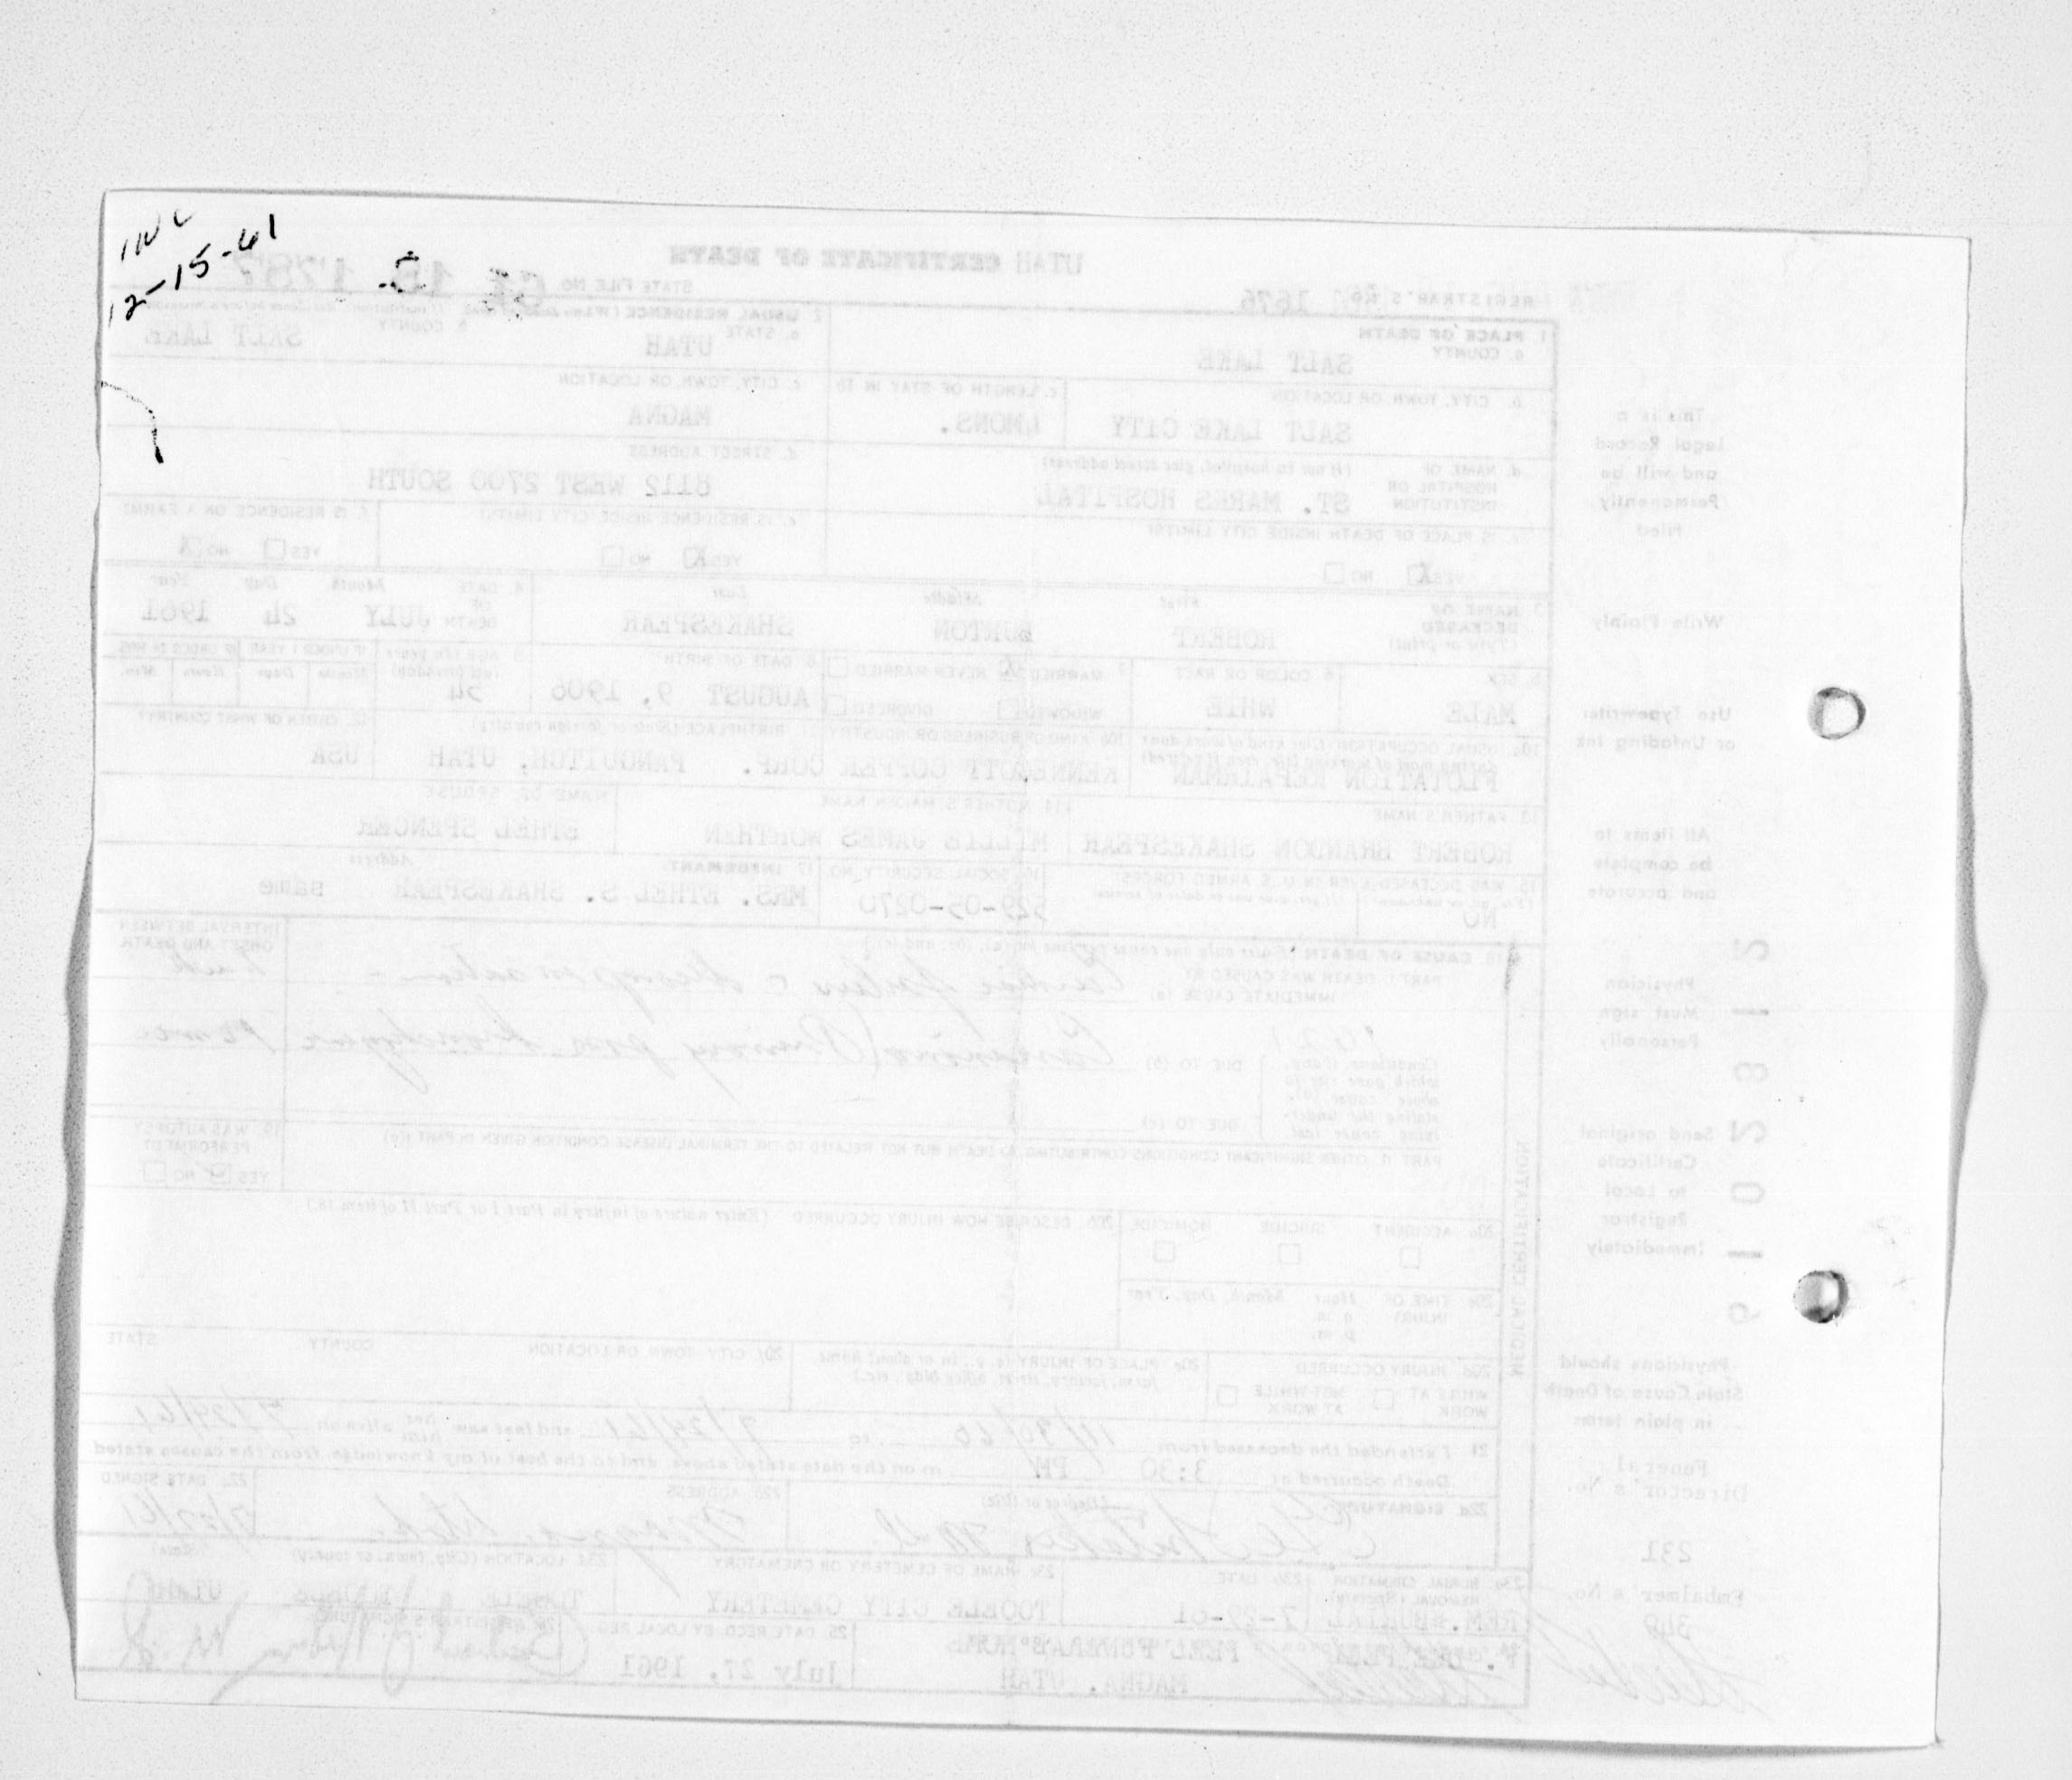 INC
12-15-61
UTAH CERTIFICATE OF DEATH
REGISTRAR'S No. 1676
STATE FILE NO. 61 18 1787
1 PLACE OF DEATH
a. COUNTY
SALT LAKE
2 USUAL RESIDENCE
a. STATE
UTAH
b. COUNTY
SALT LAKE
b. CITY, TOWN, OR LOCATION
SALT LAKE CITY
c. LENGTH OF STAY IN 1b
4MONS.
c. CITY, TOWN, OR LOCATION
MAGNA
d. NAME OF HOSPITAL OR INSTITUTION (If not in hospital, give street address)
ST. MARKS HOSPITAL
d. STREET ADDRESS
8112 WEST 2700 SOUTH
e. IS PLACE OF DEATH INSIDE CITY LIMITS?
YES X NO
e. IS RESIDENCE INSIDE CITY LIMITS?
YES X NO
f. IS RESIDENCE ON A FARM?
YES NO X
3. NAME OF DECEASED (Type or print)
First Middle Last
ROBERT BURTON SHAKESPEAR
4. DATE OF DEATH Month Day Year
JULY 24 1961
5. SEX
MALE
6. COLOR OR RACE
WHTE
7. MARRIED X NEVER MARRIED
WIDOWED DIVORCED
8. DATE OF BIRTH
AUGUST 9, 1906
9. AGE (In years last birthday)
54
IF UNDER 1 YEAR IF UNDER 24 HRS.
Months Days Hours Min.
10a. USUAL OCCUPATION (Give kind of work done during most of working life, even if retired)
FLOTATION REPAIRMAN
10b. KIND OF BUSINESS OR INDUSTRY
KENNECOTT COPPER CORP.
11. BIRTHPLACE (State or foreign country)
PANGUITCH, UTAH
12. CITIZEN OF WHAT COUNTRY?
USA
13. FATHER'S NAME
ROBERT BRANDON SHAKESPEAR
14. MOTHER'S MAIDEN NAME
MILLIE JAMES WORTHEN
NAME OF SPOUSE
ETHEL SPENCER
15. WAS DECEASED EVER IN U.S. ARMED FORCES?
NO
16. SOCIAL SECURITY NO.
529-05-0270
17. INFORMANT Address
MRS. ETHEL S. SHAKESPEAR same
18. CAUSE OF DEATH (Enter only one cause per line for (a), (b), and (c).)
INTERVAL BETWEEN ONSET AND DEATH
PART I. DEATH WAS CAUSED BY
IMMEDIATE CAUSE (a)
Conditions, if any, which gave rise to above cause (a), stating the underlying cause last
DUE TO (b) Carcinoma (Primary
DUE TO (c)
PART II. OTHER SIGNIFICANT CONDITIONS CONTRIBUTING TO DEATH BUT NOT RELATED TO THE TERMINAL DISEASE CONDITION GIVEN IN PART I(a)
19. WAS AUTOPSY PERFORMED?
YES NO
20a. ACCIDENT SUICIDE HOMICIDE
20b. DESCRIBE HOW INJURY OCCURRED (Enter nature of injury in Part I or Part II of item 18.)
20c. TIME OF INJURY Hour Month, Day, Year
a.m.
p.m.
20d. INJURY OCCURRED
WHILE AT WORK NOT WHILE AT WORK
20e. PLACE OF INJURY (e.g., in or about home, farm, factory, street, office bldg., etc.)
20f. CITY, TOWN, OR LOCATION COUNTY STATE
21. I attended the deceased from 11/30/60 to 7/24/61 and last saw him alive on 7/24/61
Death occurred at 3:30 PM m on the date stated above, and to the best of my knowledge, from the causes stated
22a. SIGNATURE (Degree or title)
M.D.
22b. ADDRESS
Magna, Utah
22c. DATE SIGNED
23a. BURIAL, CREMATION, REMOVAL (Specify)
REM. BURIAL
23b. DATE
7-29-61
23c. NAME OF CEMETERY OR CREMATORY
TOOELE CITY CEMETERY
23d. LOCATION (City, town, or county) (State)
TOOELE UTAH
PEEL FUNERAL HOME
MAGNA, UTAH
25. DATE RECD. BY LOCAL REG.
July 27, 1961
26. REGISTRAR'S SIGNATURE
MEDICAL CERTIFICATION
This is a
Legal Record
and will be
Permanently
Filed
Write Plainly
Use Typewriter
or Unfading Ink
All items to
be complete
and accurate
Physician
Must sign
Personally
Send original
Certificate
to Local
Registrar
Immediately
Physicians should
State Cause of Death
in plain terms
Funeral
Director's No.
231
Embalmer's No.
340
2 1 8 2 0 1 9